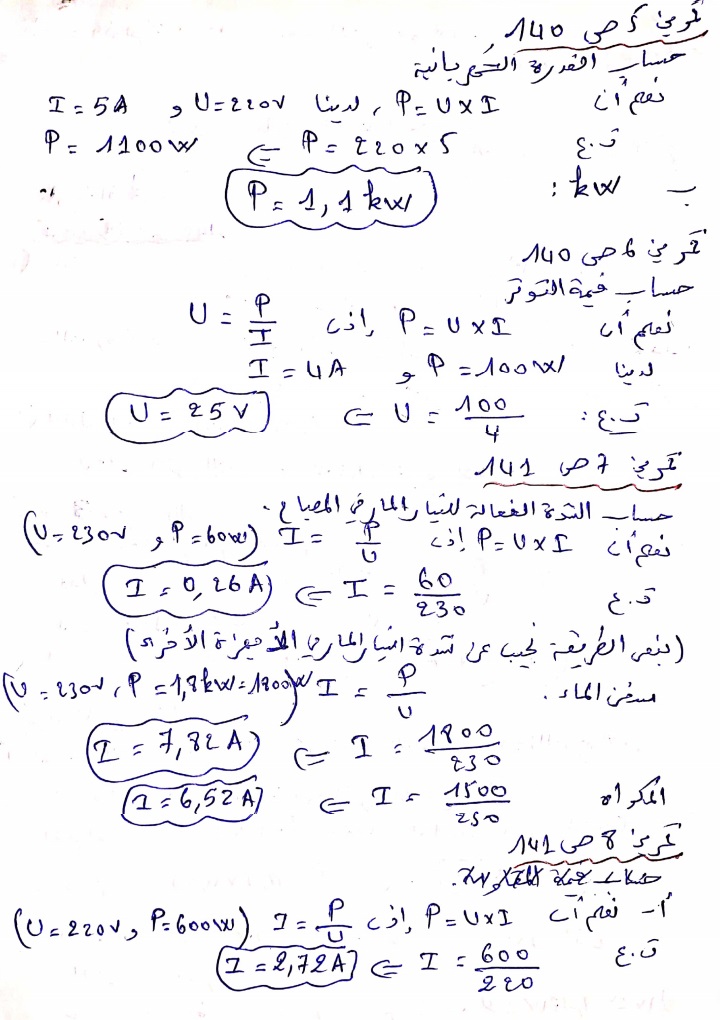 تمرين 5 ص 140
حساب القدرة الكهربائية
نعلم أن P = U x I ، لدينا U = 220V و I = 5A
ت.ع P = 220 x 5 ⇐ P = 1100W
ب kW : P = 1,1 kW
تمرين 6 ص 140
حساب قيمة التوتر
نعلم أن P = U x I إذن U = P/I
لدينا P = 100W و I = 4A
ت.ع : U = 100/4 ⇐ U = 25V
تمرين 7 ص 141
حساب الشدة الفعالة للتيار المار في المصباح.
نعلم أن P = U x I إذن I = P/U (P = 60W و U = 230V)
ت.ع I = 60/230 ⇐ I = 0,26A
(بنفس الطريقة نجيب عن شدة التيار المار في الأجهزة الأخرى)
مسخن الماء. I = P/U (U = 230V, P = 1,8kW = 1800W)
I = 1800/230 ⇐ I = 7,82A
المكواة I = 1500/230 ⇐ I = 6,52A
تمرين 8 ص 141
حساب قيمة
أ- نعلم أن P = U x I إذن I = P/U (U = 220V و P = 600W)
ت.ع I = 600/220 ⇐ I = 2,72A